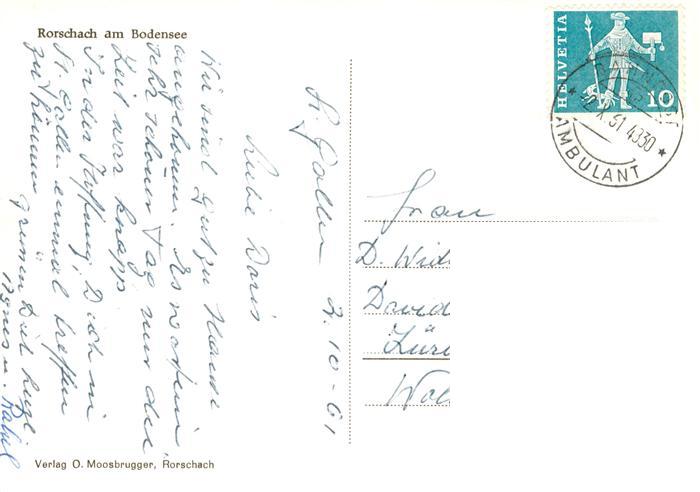 Rorschach am Bodensee
St. Gallen 2.10-61
Liebe Doris
Wir sind gut zu Hause
angekommen. Es war ein
sehr schöner Tag nur die
Zeit war knapp.
In der Hoffnung, Dich in
St. Gallen einmal treffen
zu können grüssen Dich herzl.
Agnes u.
Verlag O. Moosbrugger, Rorschach
HELVETIA
10
X.61 4330
AMBULANT
Frau
D. Wid
David
Züri
Wol